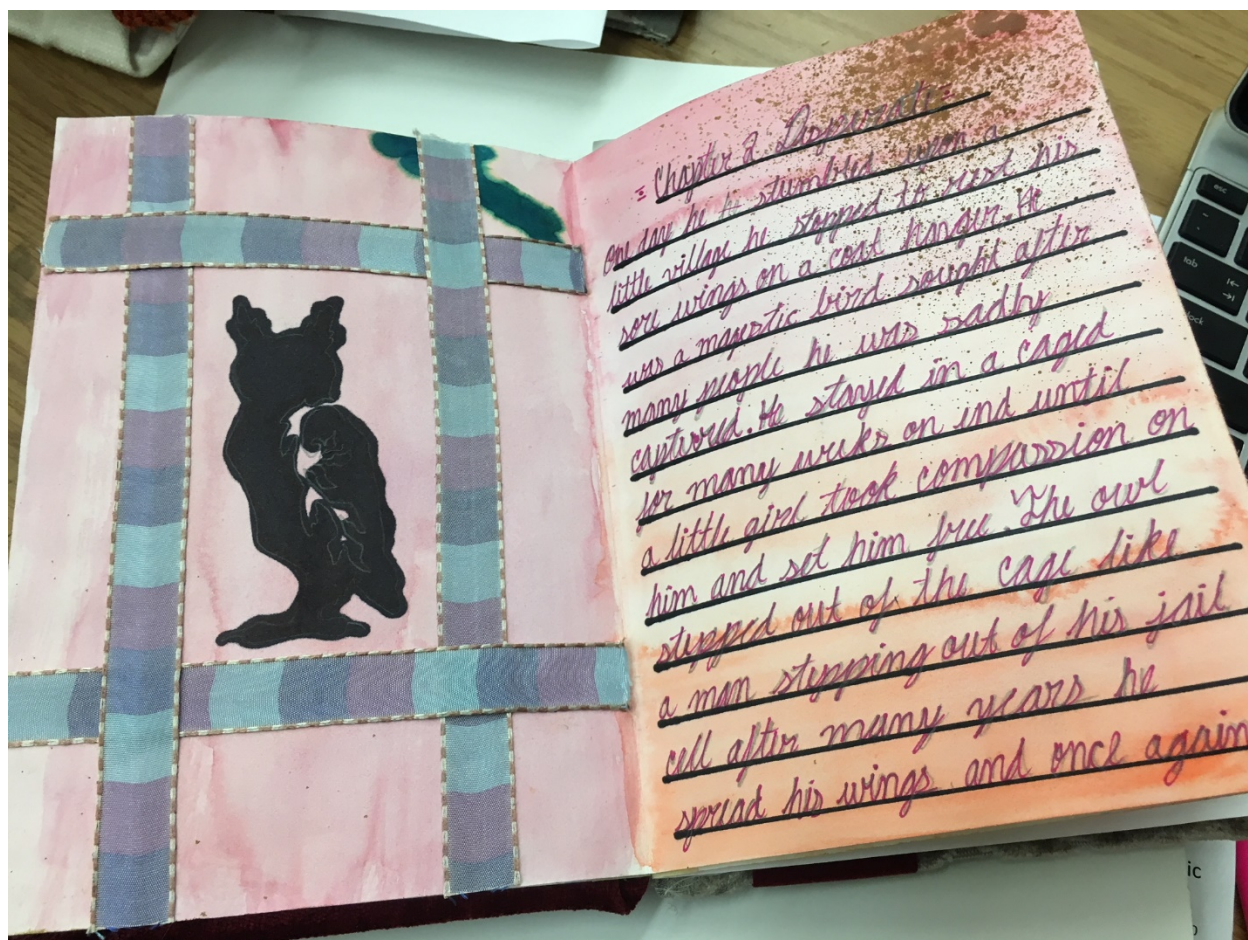 Chapter 2 Desperate
One day he stumbled upon a
little village he stopped to rest his
sore wings on a coat hanger. He
was a majestic bird sought after
many people he was sadly
captivered. He stayed in a caged
for many weeks on end until
a little girl took compassion on
him and set him free. The owl
stepped out of the cage like
a man stepping out of his jail
cell after many years he
spread his wings and once again
esc
tab
lock
ic